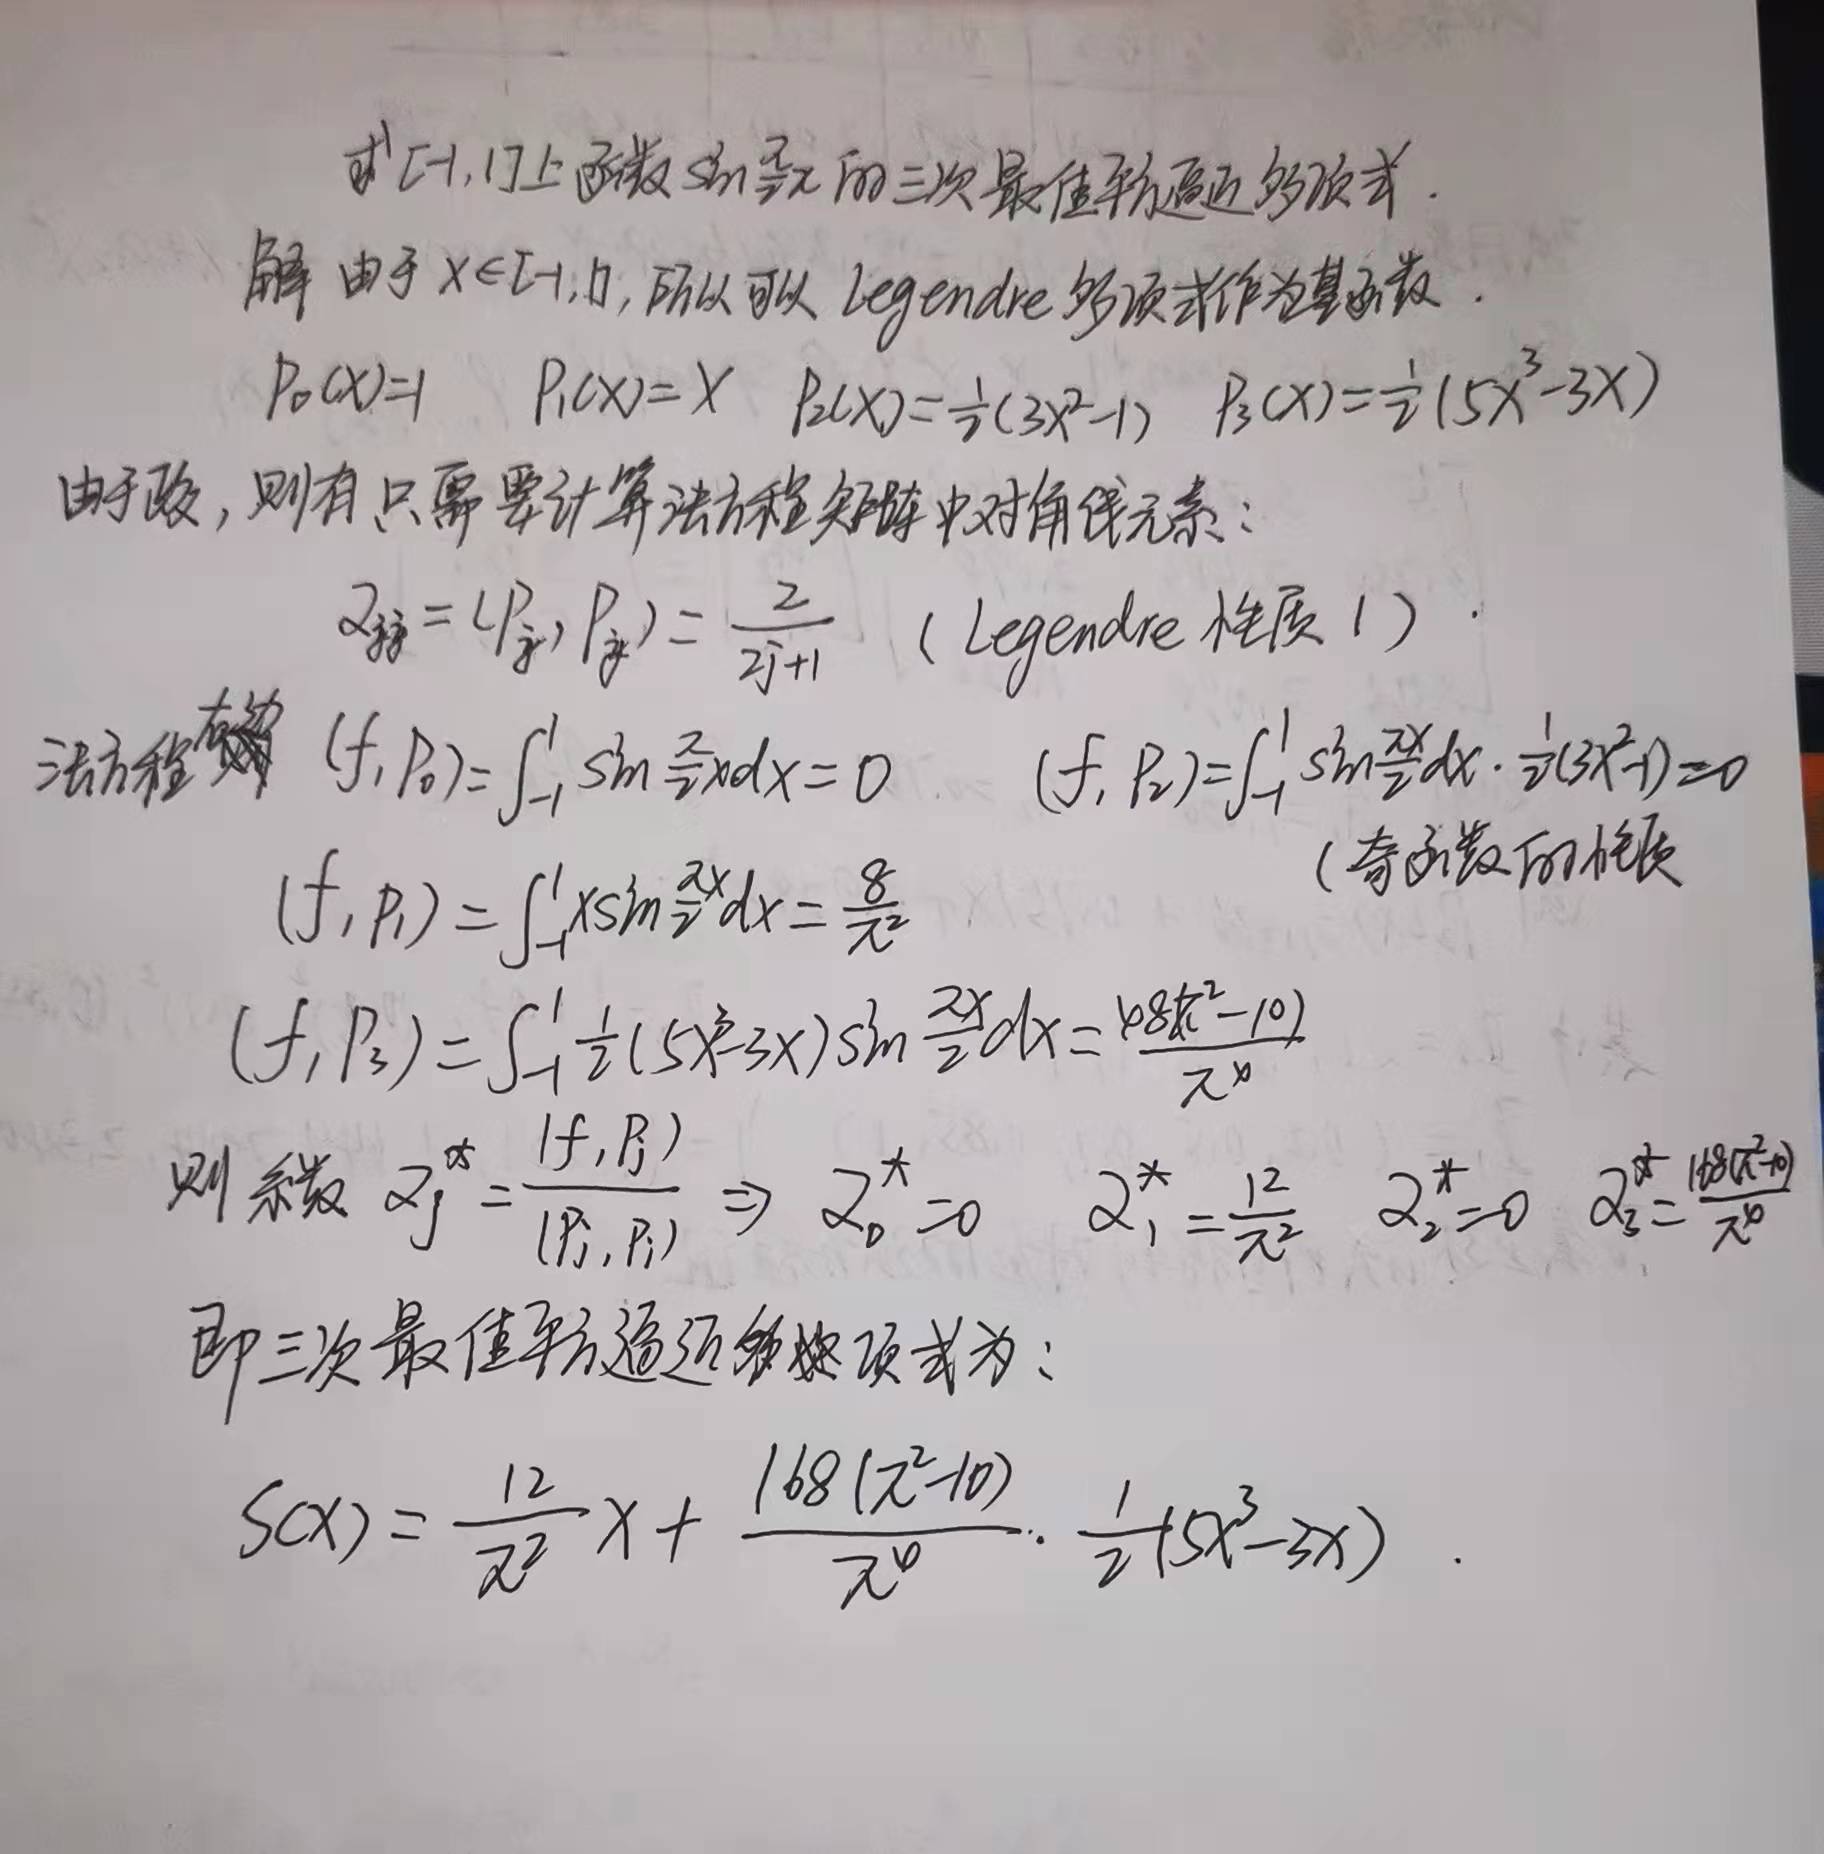 求[-1,1]上函数sin π/2 x 的三次最佳平方逼近多项式.
解 由于 x∈[-1,1], 所以可以 Legendre 多项式作为基函数.
P₀(x)=1 P₁(x)=x P₂(x)=1/2(3x²-1) P₃(x)=1/2(5x³-3x)
由于正交, 则有只需要计算法方程矩阵中对角线元素:
α_jj=(P_j, P_j)=2/(2j+1) (Legendre 性质1)
法方程右端 (f,P₀)=∫₋₁¹ sin π/2 x dx=0 (f,P₂)=∫₋₁¹ sin πx/2 dx·1/2(3x²-1)=0
(奇函数的性质
(f,P₁)=∫₋₁¹ x sin πx/2 dx=8/π²
(f,P₃)=∫₋₁¹ 1/2(5x³-3x) sin πx/2 dx=48(π²-10)/π⁴
则系数 α_j*=(f,P_j)/(P_j,P_j) ⇒ α₀*=0 α₁*=12/π² α₂*=0 α₃*=168(π²-10)/π⁴
即三次最佳平方逼近多项式为:
S(x)=12/π² x+168(π²-10)/π⁴·1/2(5x³-3x).